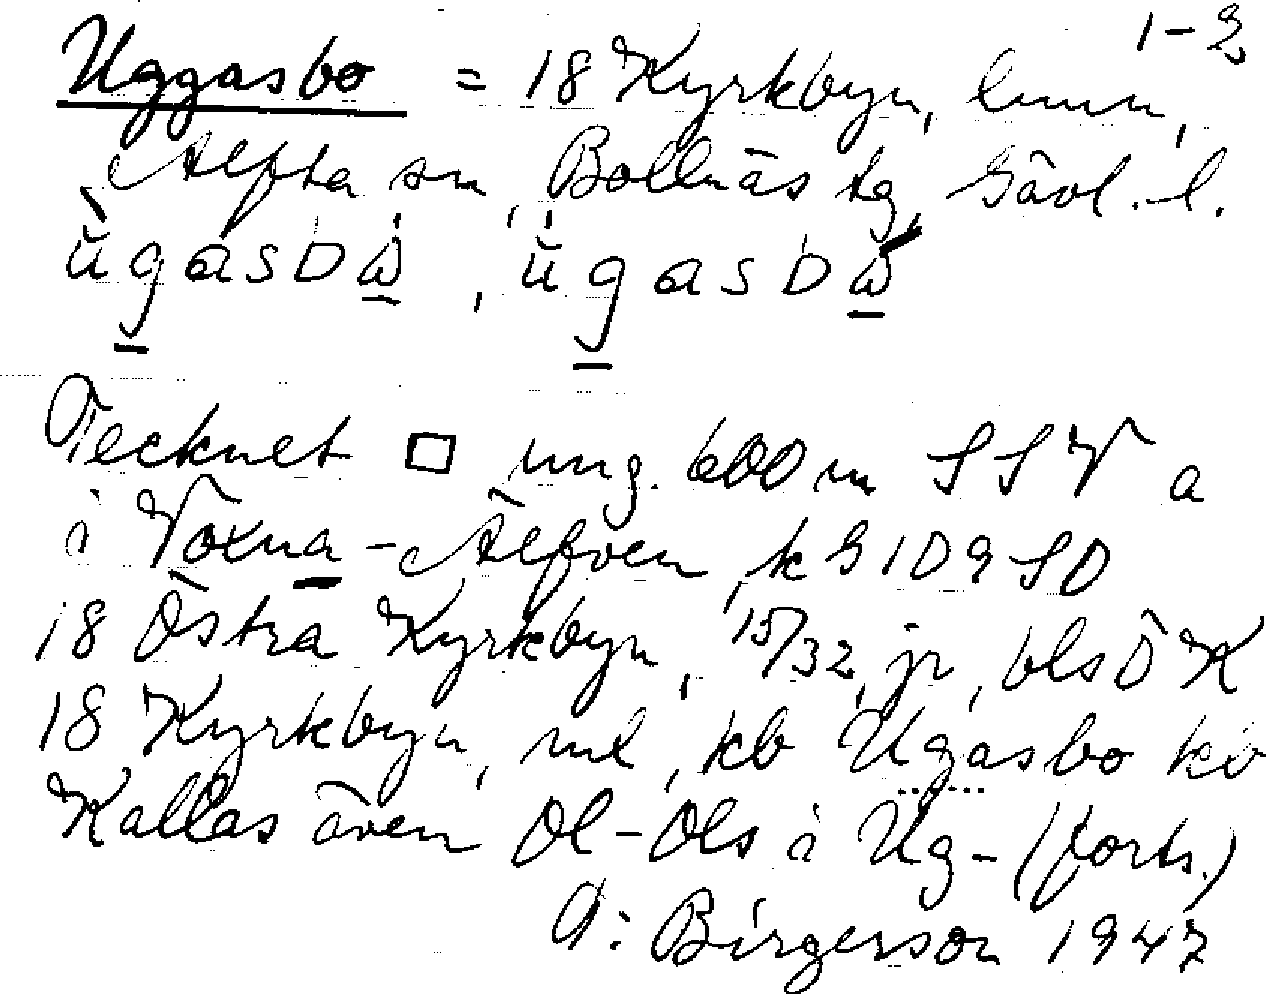 1-3
Uggasbo = 18 Kyrkbyn, hmn,
Alfta sn, Bollnäs tg, Gävl. l.
Tecknet □ ung. 600 m SSV a
i Voxna-Älfven, k G 109 SO
18 Östra Kyrkbyn, 15/32, jr, bls Ö K
18 Kyrkbyn, ml, kb Ugasbo kb
Kallas även Ol-Ols i Ug- (forts.)
Birgerson 1947